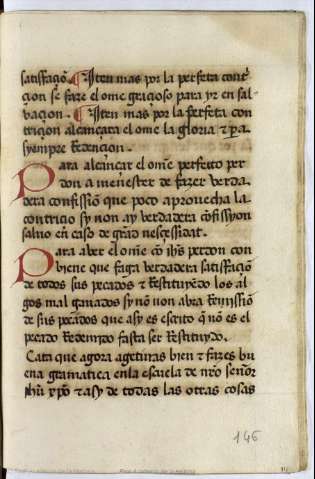 satisfaçiõ. ¶ Iten mas por la perfeta contri
çion se faze el ome graçioso para yr en sal-
vaçion. ¶ Iten mas por la perfeta con
triçion alcançara el ome la gloria & pa
syempre Redençion.
Para alcançar el ome perfeito per
don a menester de fazer verda
dera confissiõ que poco aprovecha la
contriçio sy non ay verdadera cõfissyon
salvo en caso de grãd nesçessidat.
Para aber el ome cõ ihũs perdon con
viene que faga verdadera satisfaçiõ
de todos sus pecados & Restituyẽdo los al
gos mal ganados sy nõ non abra Remissiõ
de sus pecados que asy es escrito q̃ nõ es el
pecado Redemido fasta ser Restituydo.
Cata que agora ageturas bien & fazes bu
ena gramatica enla escuela de nr̃o señor
jhũ xp̃o & asy de todas las otras cosas
146